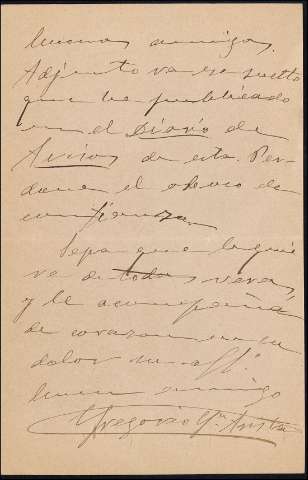 buenos amigos.
Adjunto va ese suelto
que he publicado
en el Diario de
Avisos de esta. Per-
done el abuso de
confianza.
Sepa que le quie
re de todas veras
y le acompaña
de corazon en su
dolor su aff.º
buen amigo
Gregorio Gª